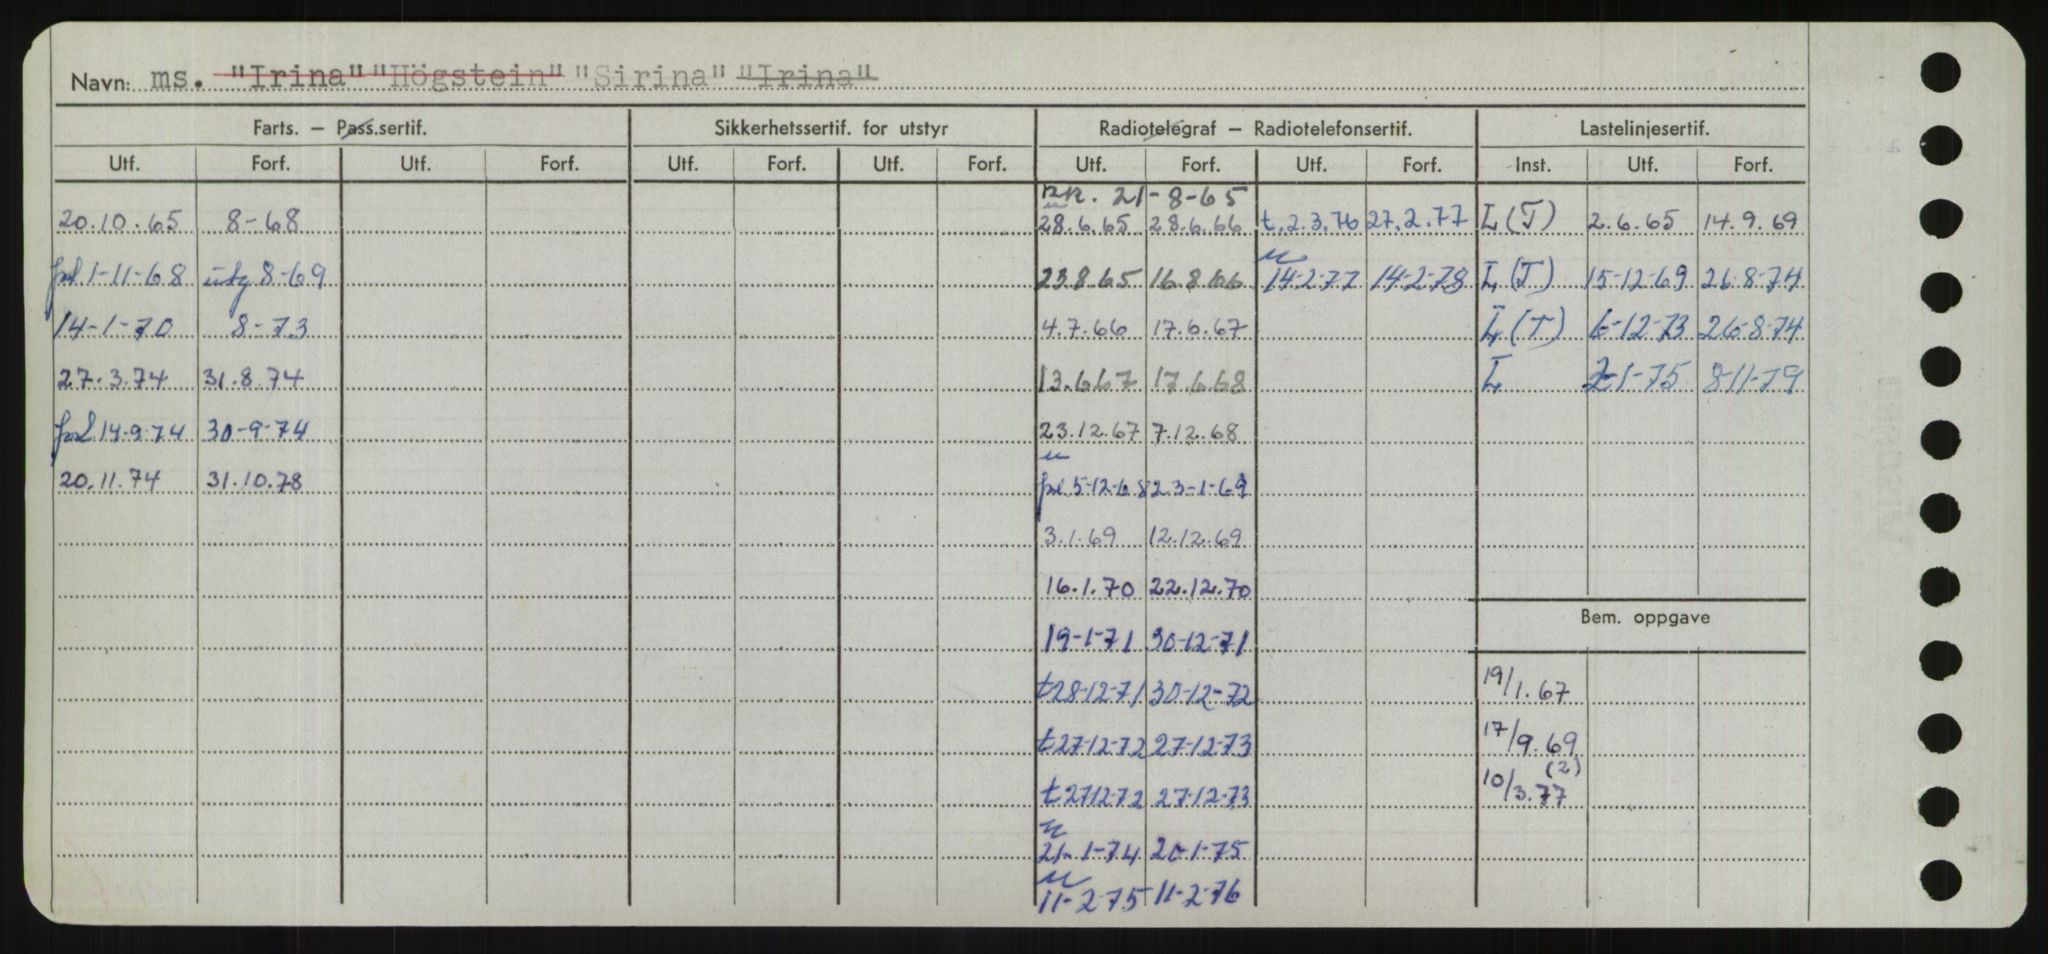 Navn: ms. "Irina" "Högstein" "Sirina" "Irina"
Farts. – Pass.sertif. Sikkerhetssertif. for utstyr Radiotelegraf – Radiotelefonsertif. Lastelinjesertif.
Utf. Forf. Utf. Forf. Utf. Forf. Utf. Forf. Utf. Forf. Utf. Forf. Inst. Utf. Forf.
21-8-65
20.10.65 8-68 28.6.65 28.6.66 t.2.3.76 27.2.77 L(T) 2.6.65 14.9.69
1-11-68 utg 8-69 23.8.65 16.8.66 14-2-77 14-2-78 L(T) 15-12-69 26-8-74
14-1-70 8-73 4.7.66 17.6.67 L(T) 6-12-73 26-8-74
27.3.74 31.8.74 13.6.67 17.6.68 L 2-1-75 8-11-79
14-9-74 30-9-74 23.12.67 7.12.68
20.11.74 31.10.78 5-12-68 23-1-69
3.1.69 12.12.69
16.1.70 22.12.70
Bem. oppgave
19-1-71 30-12-71
t28-12-71 30-12-72 19/1.67
t27-12-72 27-12-73 17/9.69
(2)
t27-12-72 27-12-73 10/3.77
21-1-74 20-1-75
11-2-75 11-2-76